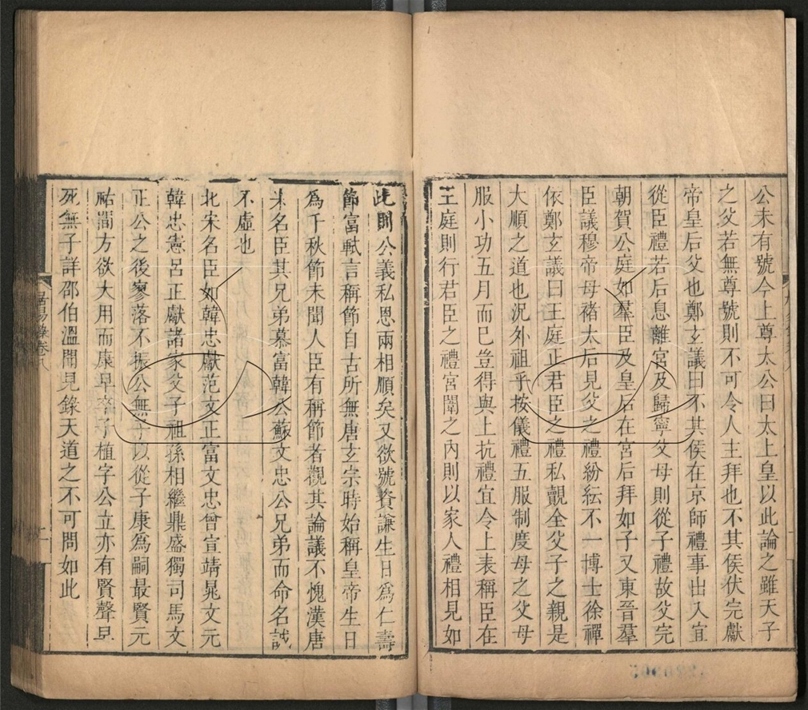 公未有號今上尊太公曰太上皇以此論之雖天子
之父若無尊號則不可令人主拜也不其侯伏完獻
帝皇后父也鄭玄議曰不其侯在京師禮事出入宜
從臣禮若后息離宮及歸寧父母則從子禮故父完
朝賀公庭如羣臣及皇后在宮后拜如子又東晉羣
臣議穆帝母褚太后見父之禮紛紜不一博士徐禪
依鄭玄議曰王庭正君臣之禮私覿全父子之親是
大順之道也況外祖乎按儀禮五服制度母之父母
服小功五月而巳豈得與上抗禮宜令上表稱臣在
王庭則行君臣之禮宮闈之內則以家人禮相見如
此則公義私恩兩相順矣又欲號資謙生日為仁壽
節富軾言稱節自古所無唐玄宗時始稱皇帝生日
爲千秋節未聞人臣有稱節者觀其論議不愧漢唐
名臣其兄弟慕富韓公蘇文忠公兄弟而命名誠
不虛也
北宋名臣如韓忠獻范文正富文忠曾宣靖晁文元
韓忠憲呂正獻諸家父子祖孫相繼鼎盛獨司馬文
正公之後寥落不振公無子以從子康爲嗣最賢元
祐間方欲大用而康早卒子植字公立亦有賢聲早
死無子詳邵伯溫聞見錄天道之不可問如此
居易錄卷八